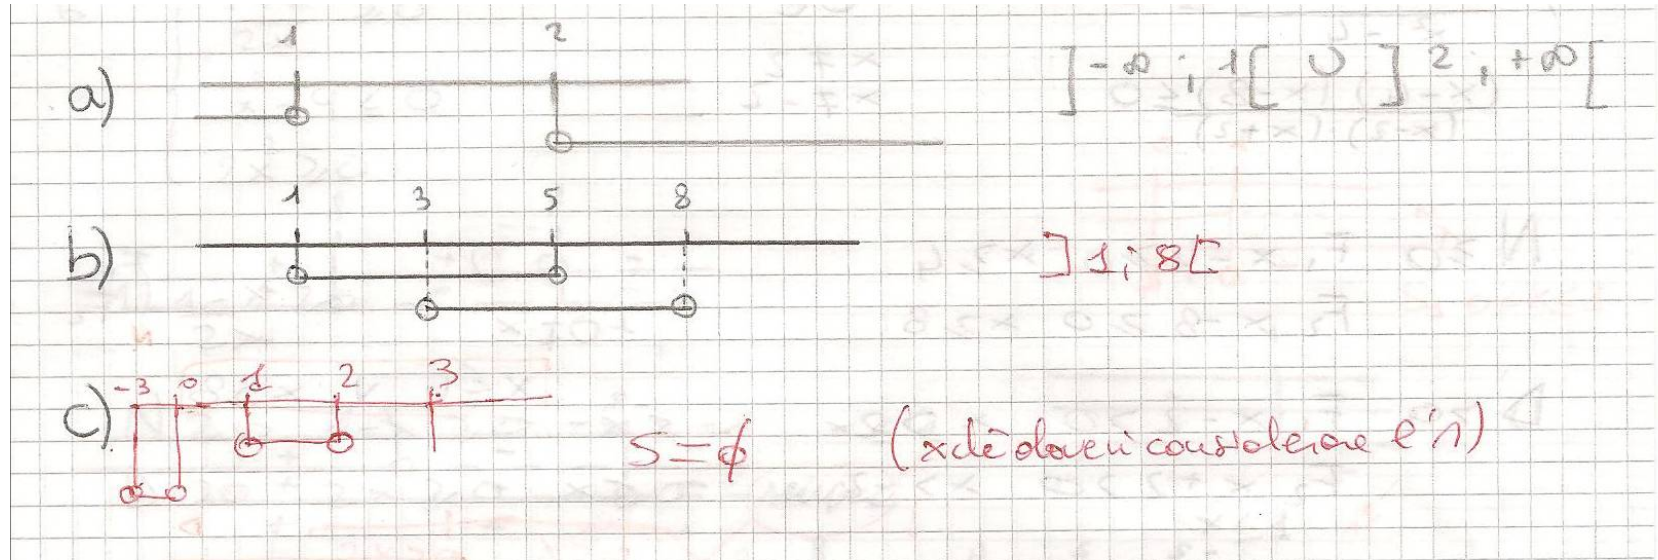 1 2
a) ]-∞ ; 1[ ∪ ]2 ; +∞[
1 3 5 8
b) ]1; 8[
-3 0 1 2 3
c) S=∅ (xchè dovevi considerare l'∩)